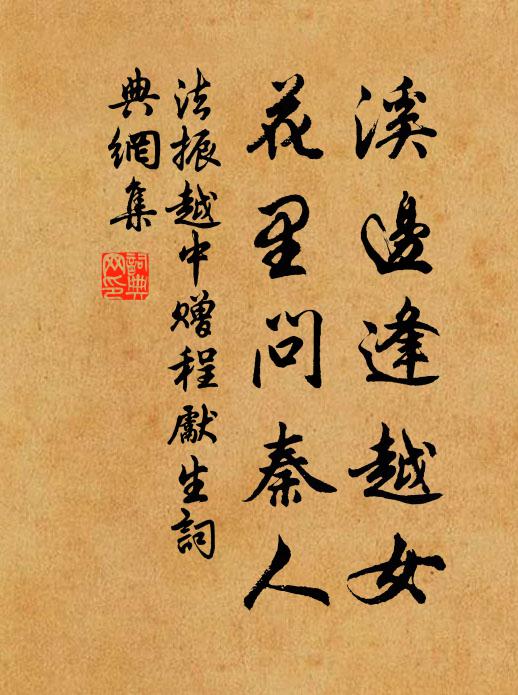 溪邊逢越女
花里問秦人
法振越中赠程獻生詞
典網集
詞典
网印